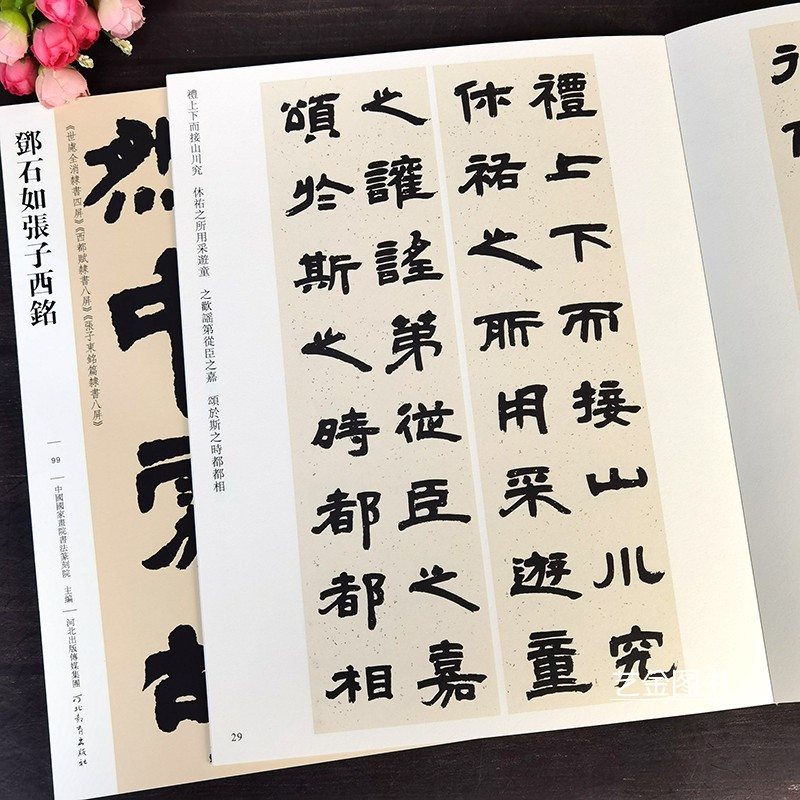 禮上下而接山川究
休祐之所用采遊童
之讙謠第從臣之嘉
頌於斯之時都都相
禮上下而接山川究 休祐之所用采遊童 之歡謠第從臣之嘉 頌於斯之時都都相
29
鄧石如張子西銘
《世慮全消隸書四屏》《西都賦隸書八屏》《張子東銘篇隸書八屏》
99
中國國家畫院書法篆刻院 主編
河北出版傳媒集團 河北教育出版社
艺金图